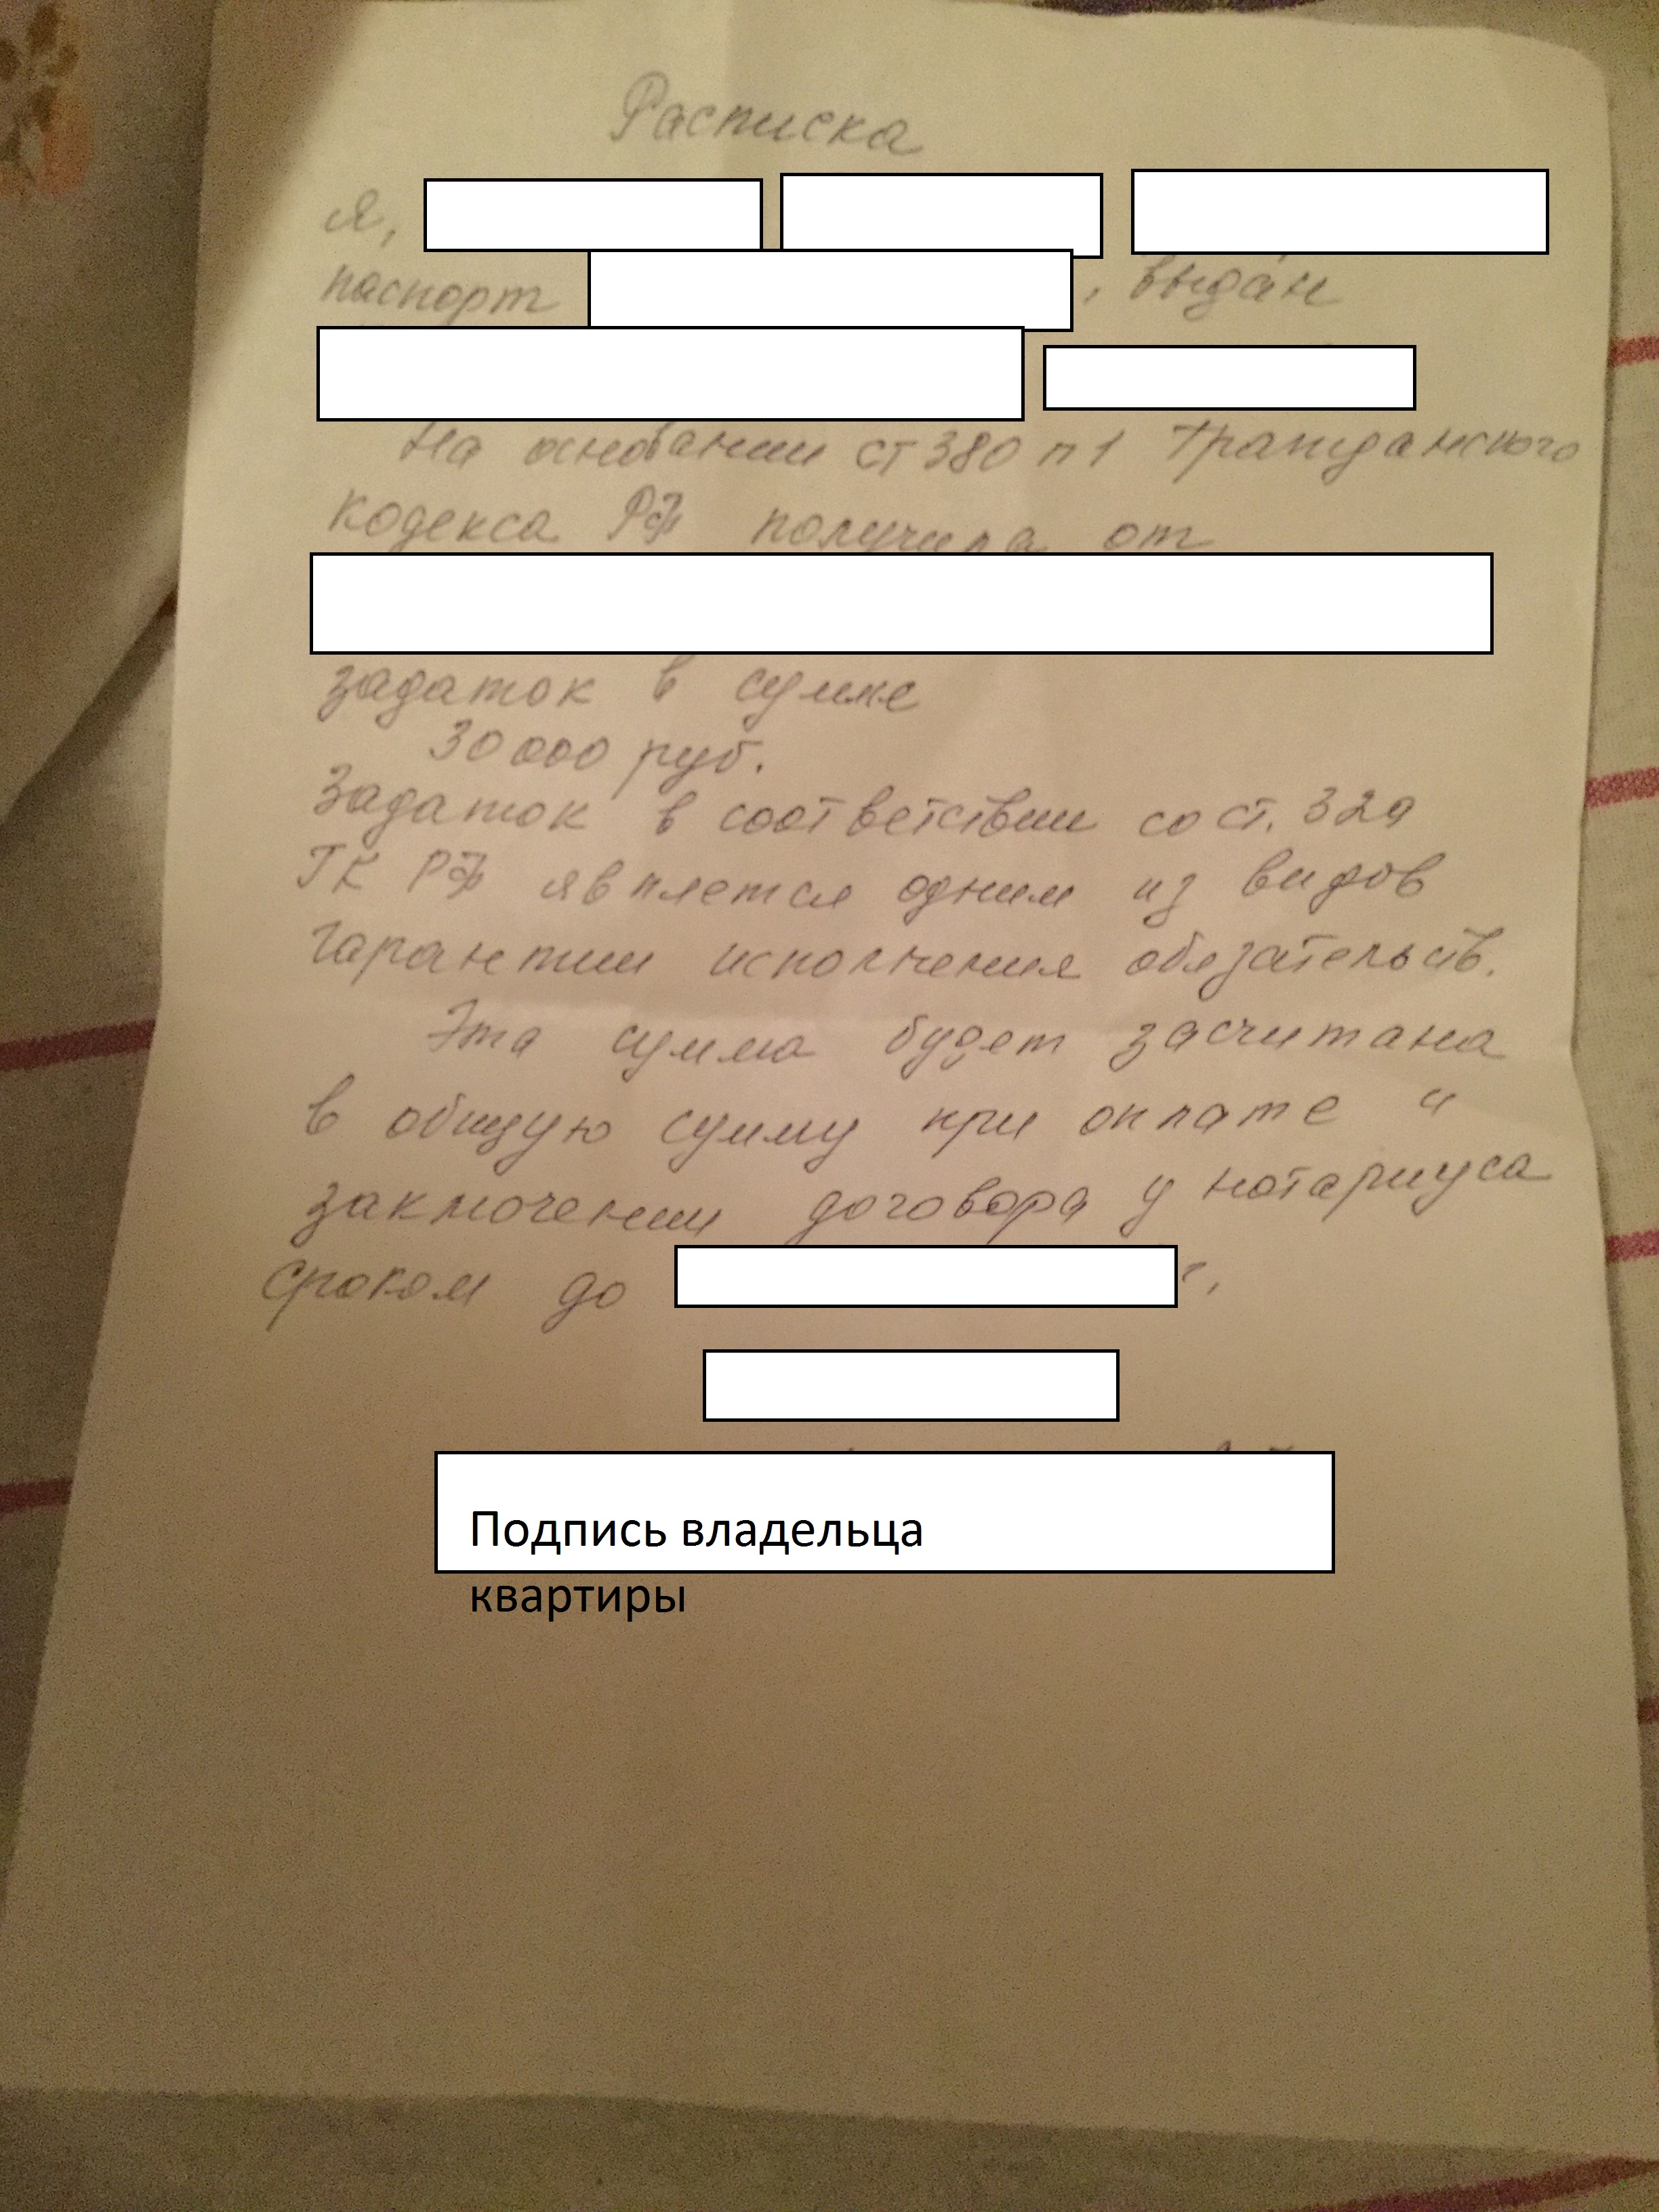 Расписка
Я,
паспорт , выдан
На основании ст 380 п 1 Гражданского
кодекса РФ получила от
задаток в сумме
30 000 руб.
Задаток в соответствии со ст. 329
ГК РФ является одним из видов
гарантии исполнения обязательств.
Эта сумма будет засчитана
в общую сумму при оплате и
заключении договора у нотариуса
сроком до г,
Подпись владельца
квартиры